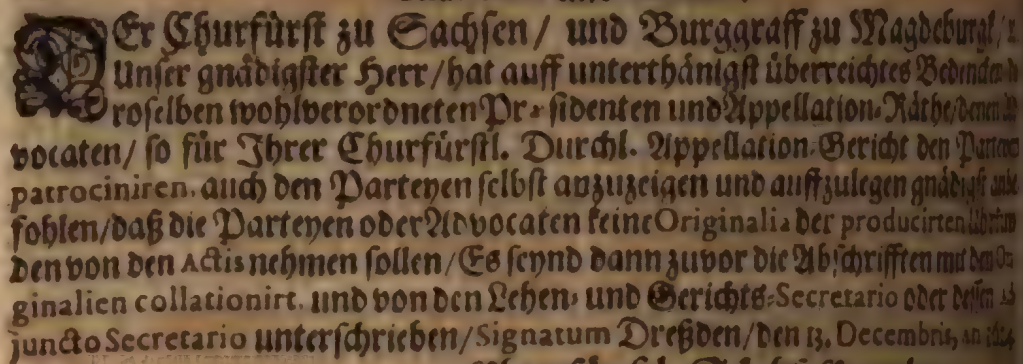 DEr Churfürst zu Sachsen / und Burggraff zu Magdeburgk /
Unser gnädigster Herr / hat auff unterthänigst überreichtes Bedencken
roselben wohlverordneten Præsidenten und Appellation-Räthe / denen
vocaten / so für Ihrer Churfürstl. Durchl. Appellation-Gericht den Parteyen
patrociniren, auch den Parteyen selbst anzuzeigen und auffzulegen gnädigst
fohlen / daß die Parteyen oder Advocaten keine Originalia der producirten
den von den Actis nehmen sollen / Es seynd dann zuvor die Abschrifften mit den
ginalien collationirt, und von den Lehen- und Gerichts-Secretario oder dessen
juncto Secretario unterschrieben / Signatum Dreßden / den 13. Decembris,